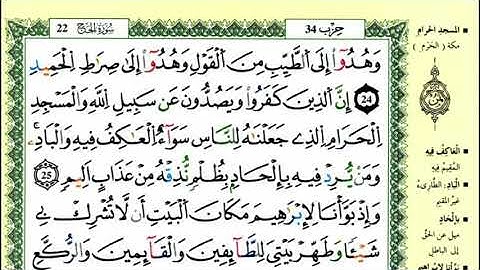 سُورَةُ الْحَجِّ 22
حِزْب 34
وَهُدُوٓاْ إِلَى اَلطَّيِّبِ مِنَ اَلْقَوْلِ وَهُدُوٓاْ إِلَىٰ صِرَٰطِ اِلْحَمِيدِ
24 إِنَّ اَلذِينَ كَفَرُواْ وَيَصُدُّونَ عَن سَبِيلِ اِللَّهِ وَالْمَسْجِدِ
اِلْحَرَامِ اِلذِے جَعَلْنَٰهُ لِلنَّاسِ سَوَآءٌ اُلْعَٰكِفُ فِيهِ وَالْبَادِۦ
وَمَنْ يُّرِدْ فِيهِ بِإِلْحَادِۭ بِظُلْمٍ نُّذِقْهُ مِنْ عَذَابٍ اَلِيمٍ 25
وَإِذْ بَوَّأْنَا لِإِبْرَٰهِيمَ مَكَانَ اَلْبَيْتِ أَن لَّا تُشْرِكْ بِے
شَيْـٔاً وَطَهِّرْ بَيْتِيَ لِلطَّآئِفِينَ وَالْقَآئِمِينَ وَالرُّكَّعِ
المسجد الحرام
مكة (الحرم)
العاكف فيه
المقيم فيه
الباد: الطارئ
غير المقيم
بإلحاد
ميل عن الحق
إلى الباطل